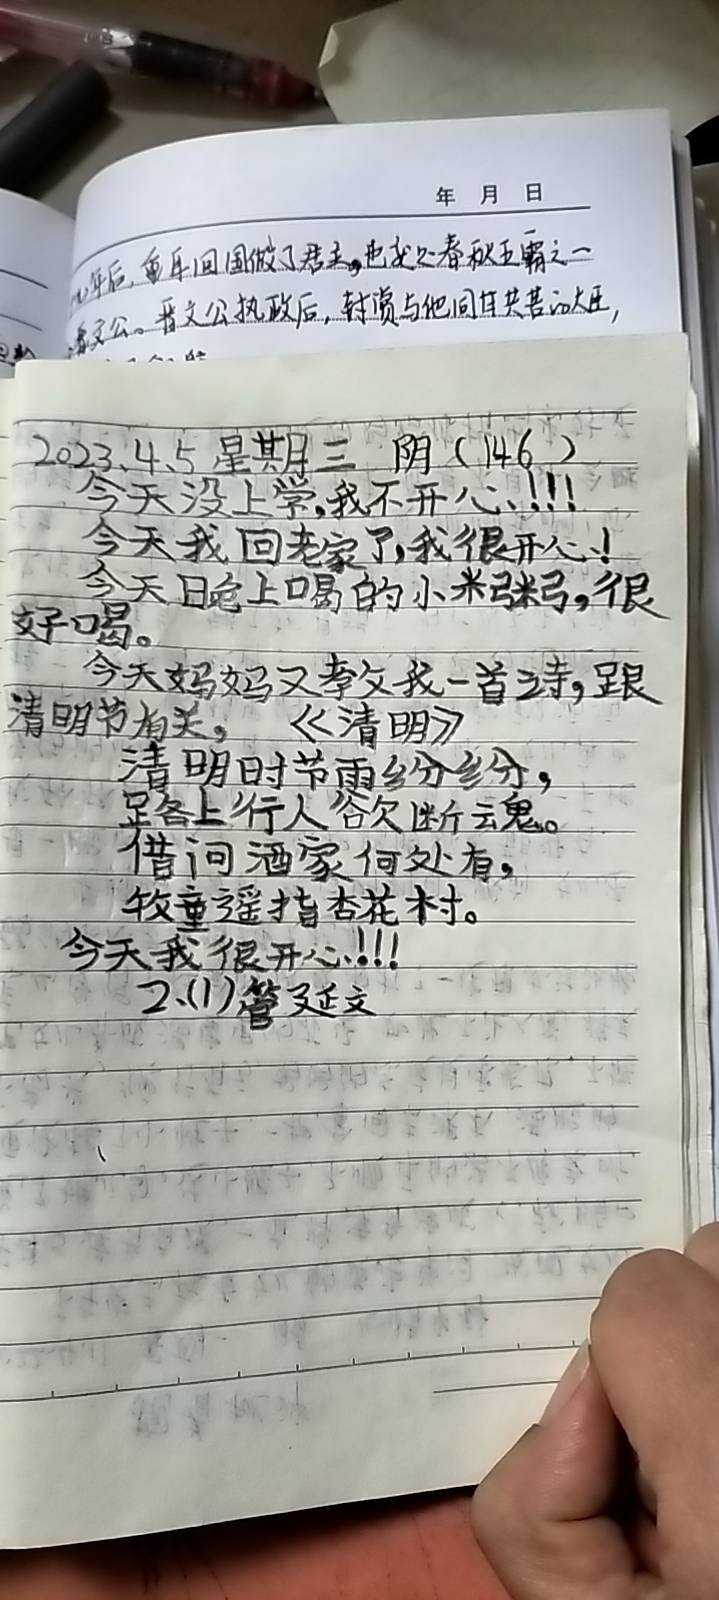 年 月 日
年后,重耳回国做了君主,也就是春秋五霸之一
晋文公。晋文公执政后,封赏与他同甘共苦的大臣,
2023.4.5 星期三 阴(146)
今天没上学,我不开心!!!
今天我回老家了,我很开心!
今天晚上喝的小米粥,很
好喝。
今天妈妈又教我一首诗,跟
清明节有关,《清明》
清明时节雨纷纷,
路上行人欲断魂。
借问酒家何处有,
牧童遥指杏花村。
今天我很开心!!!
2、(1)管子廷文